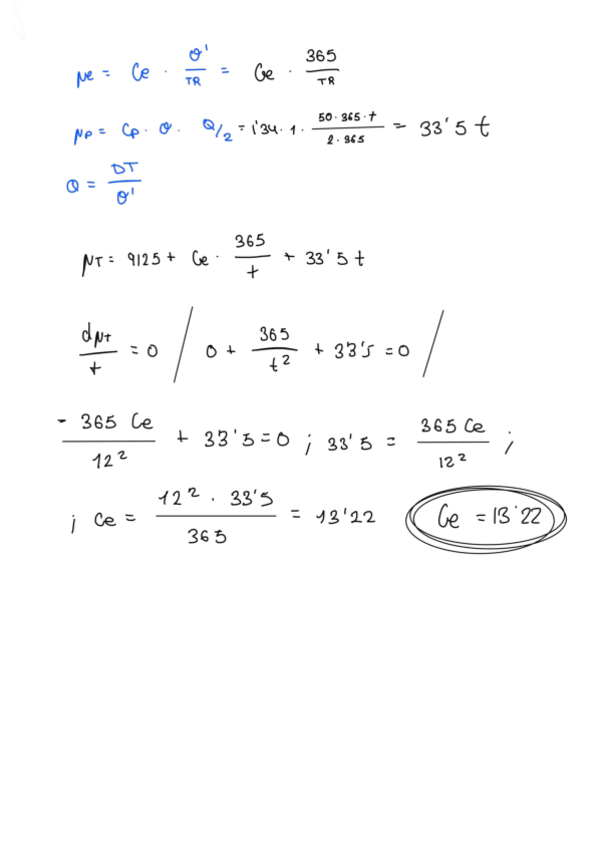 μe = Ce · θ'/TR = Ce · 365/TR
μp = Cp · θ · Q/2 = 1'34 · 1 · 50·365·t/2·365 = 33'5 t
Q = DT/θ'
μT = 9125 + Ce · 365/t + 33'5 t
dμT/t = 0 / 0 + 365/t² + 33'5 = 0 /
- 365 Ce/12² + 33'5 = 0 ; 33'5 = 365 Ce/12² ;
; Ce = 12² · 33'5/365 = 13'22 Ce = 13'22